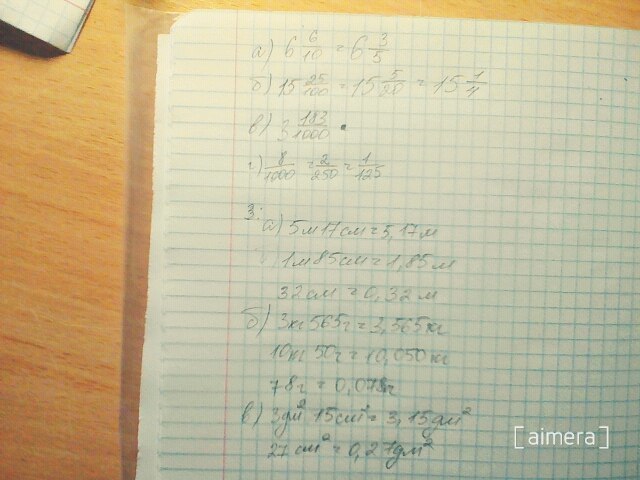 а) 6 6/10 = 6 3/5
б) 15 25/100 = 15 5/20 = 15 1/4
в) 3 183/1000.
г) 8/1000 = 2/250 = 1/125
3. а) 5м17см=5,17м
1м85см=1,85м
32см=0,32м
б) 3кг565г=3,565кг
10кг50г=10,050кг
78г=0,078кг
в) 3дм² 15см²=3,15дм²
27см²=0,27дм²
[aimera]